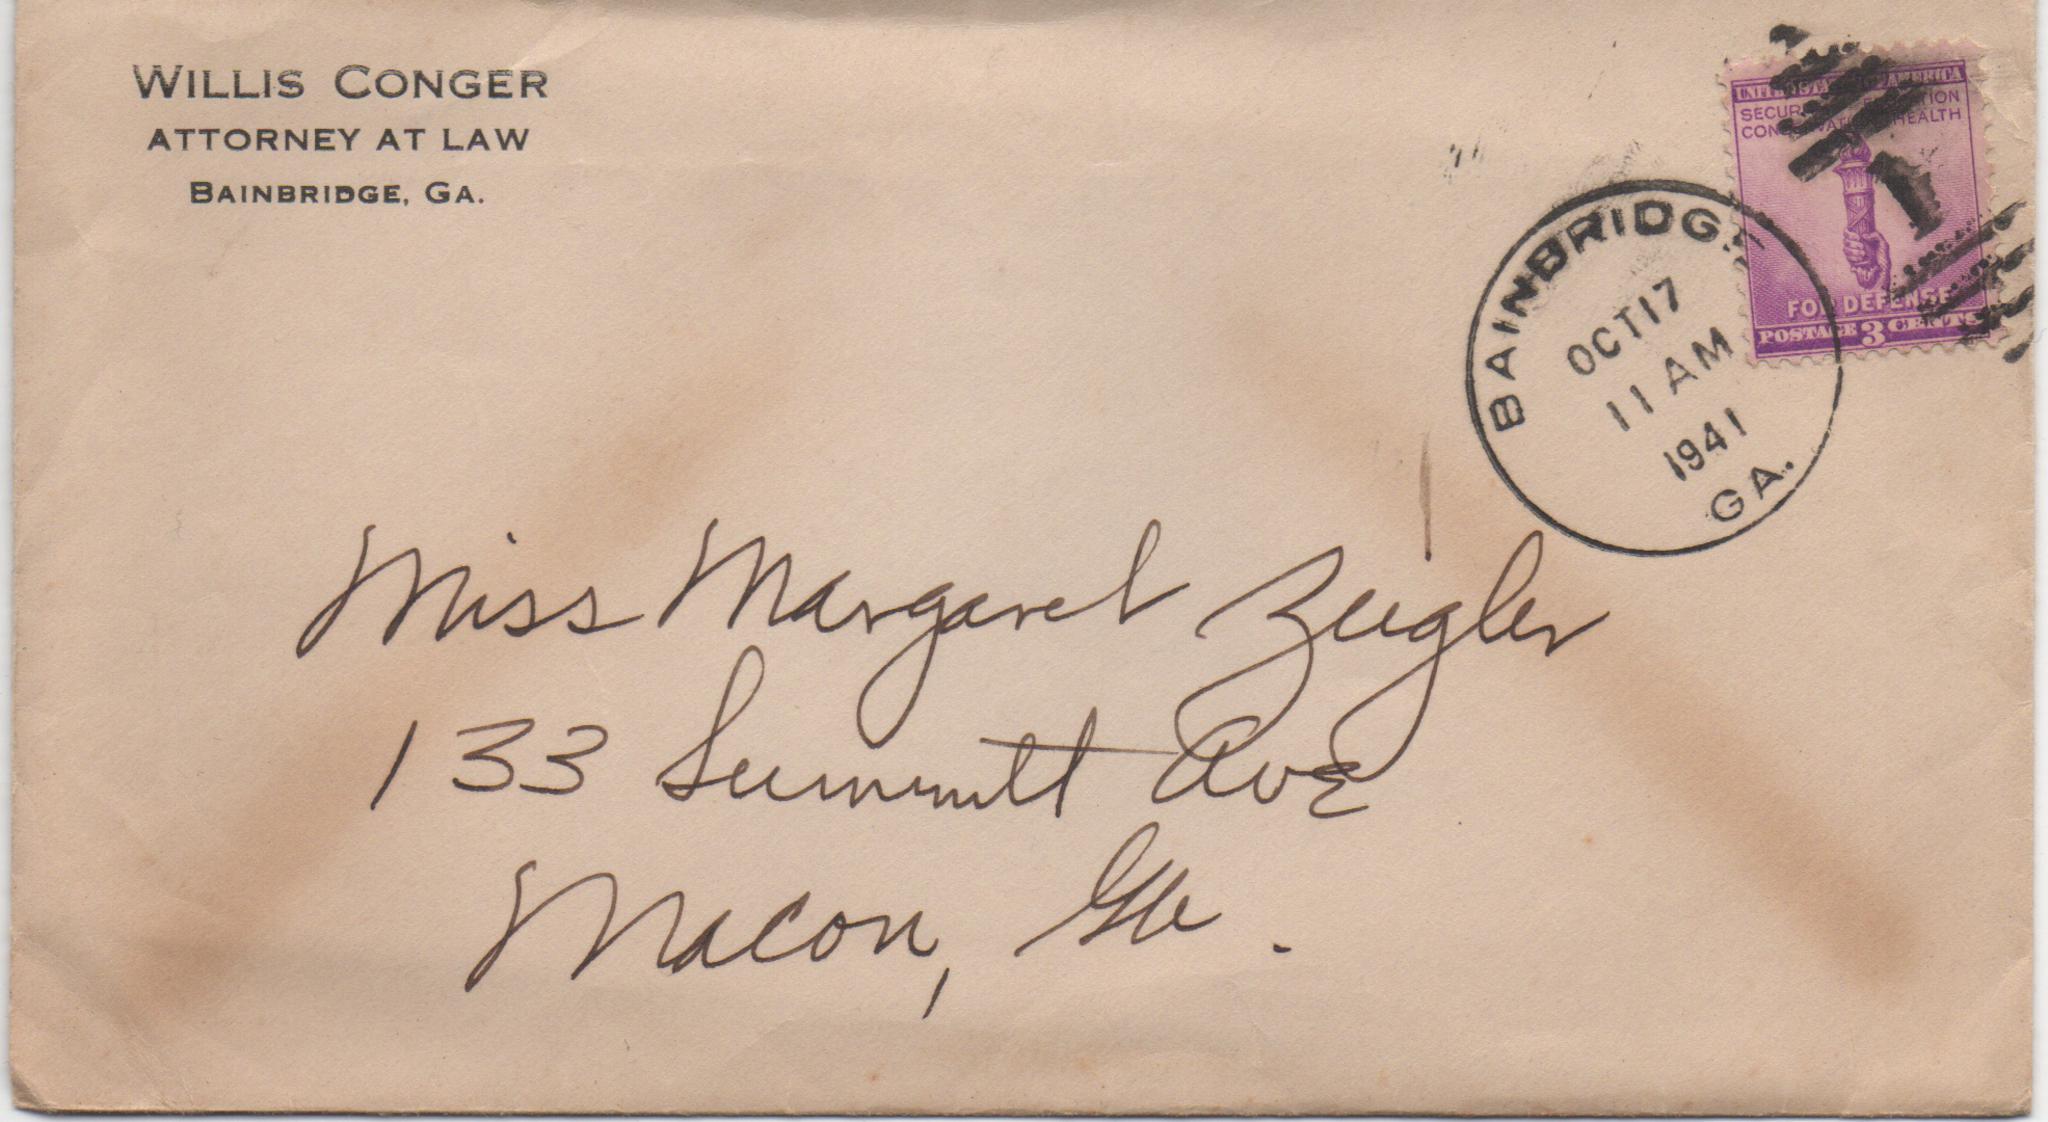 WILLIS CONGER
ATTORNEY AT LAW
BAINBRIDGE, GA.
UNITED STATES OF AMERICA
SECURITY EDUCATION
CONSERVATION HEALTH
1
FOR DEFENSE
POSTAGE 3 CENTS
BAINBRIDGE
OCT 17
11 AM
1941
GA.
Miss Margaret Zeigler
133 Summitt Ave
Macon, Ga.